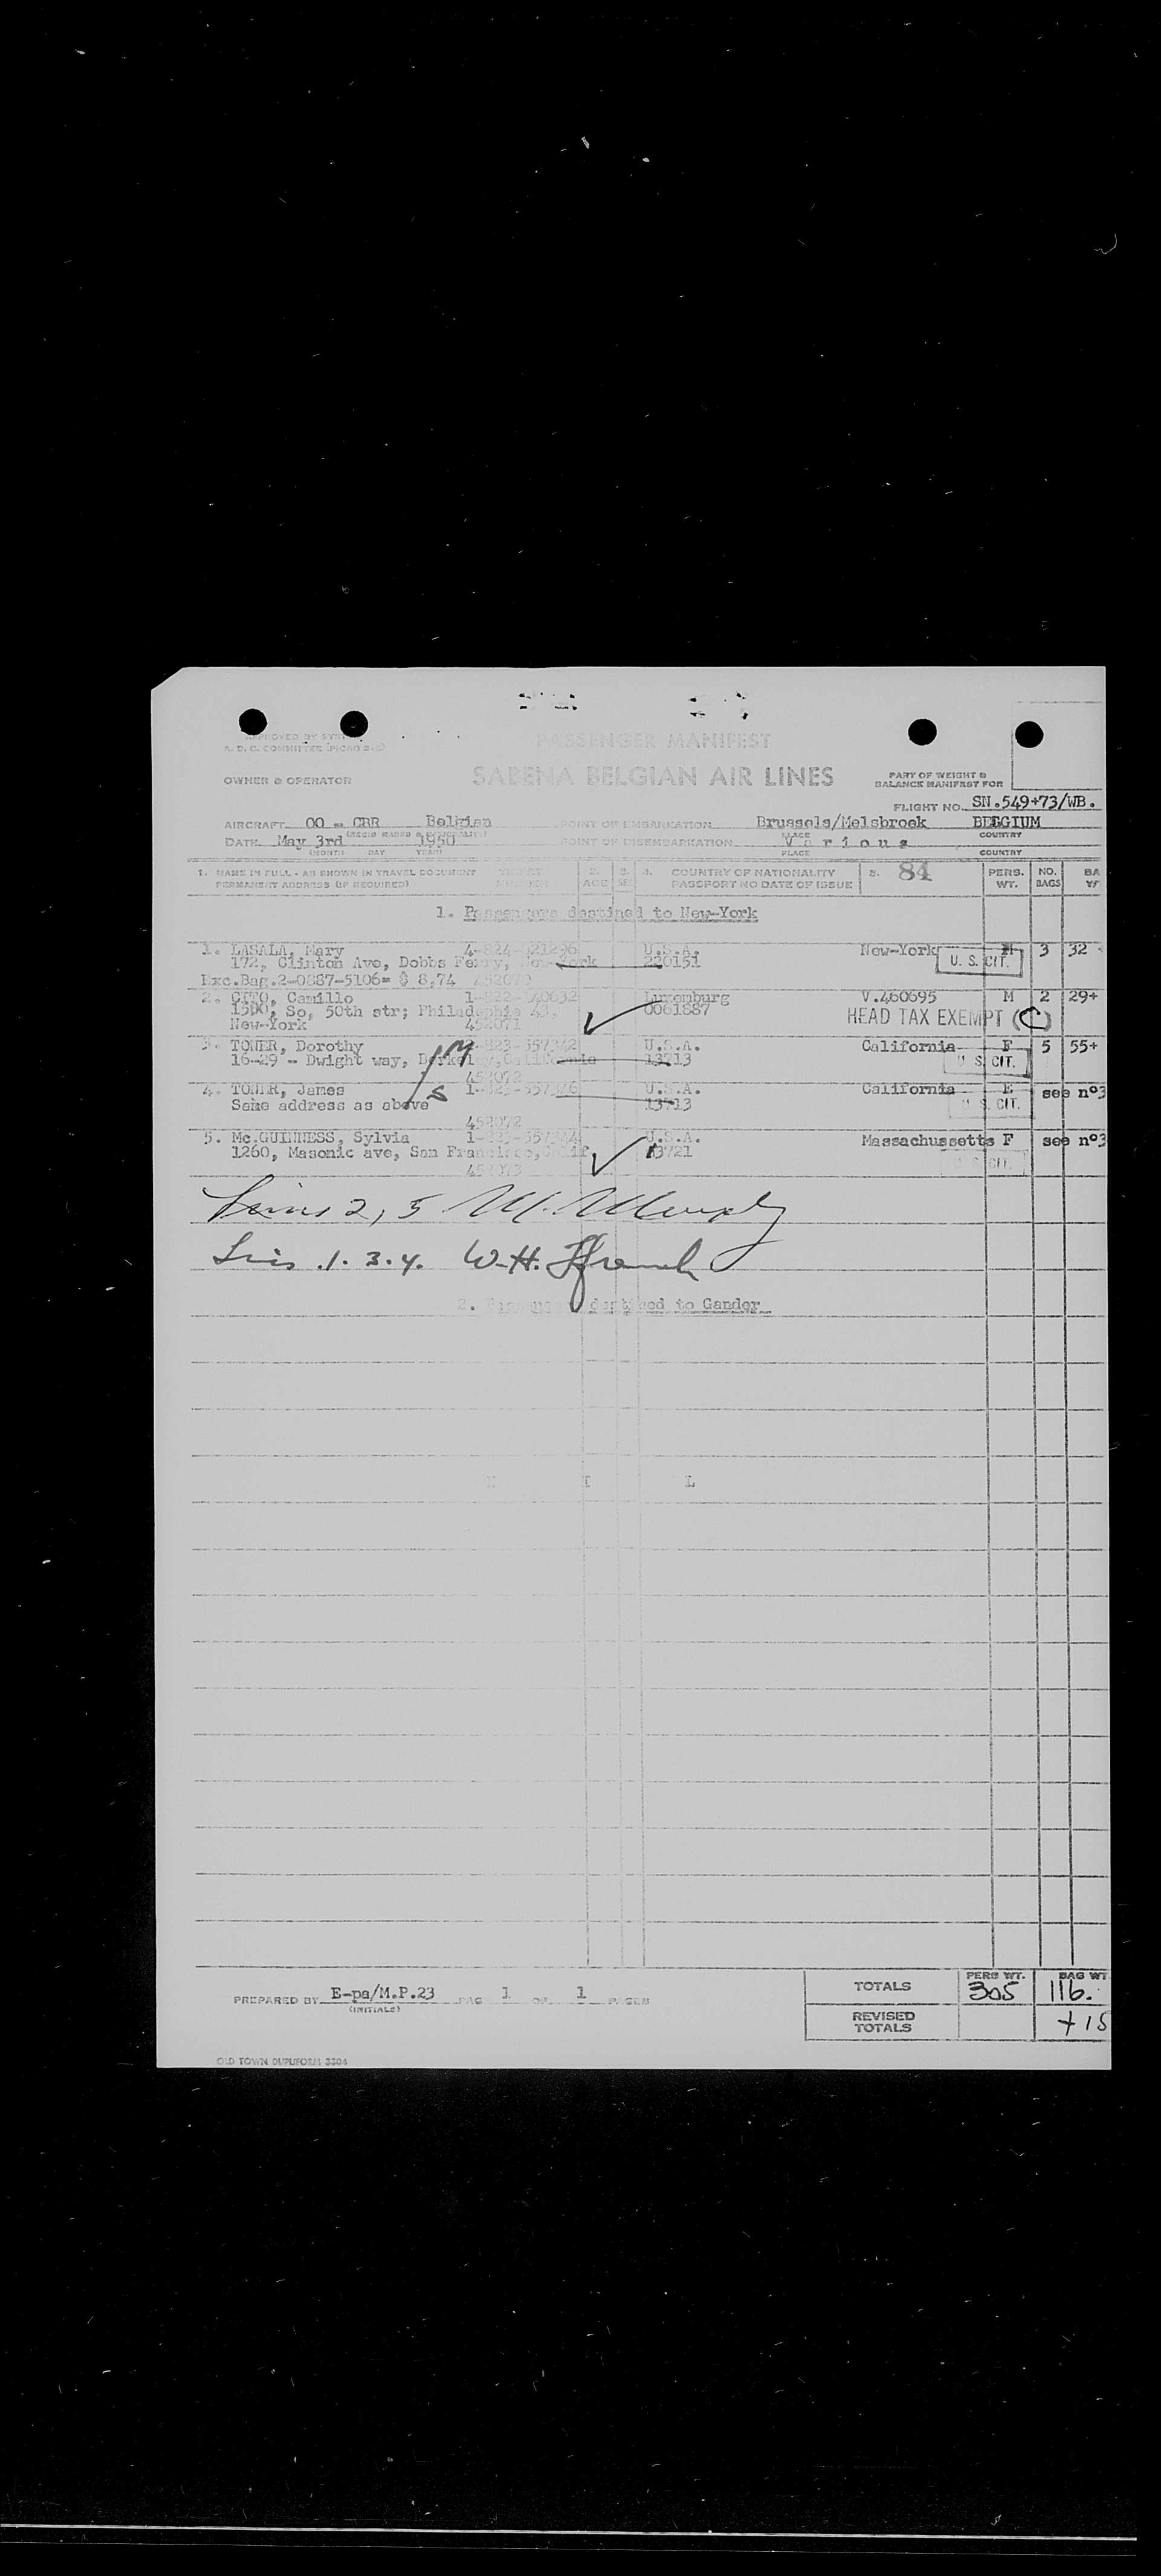 APPROVED BY
A. D. C. COMMITTEE
PASSENGER MANIFEST
OWNER & OPERATOR
SABENA BELGIAN AIR LINES
PART OF WEIGHT &
BALANCE MANIFEST FOR
FLIGHT NO. SN.549+73/WB.
AIRCRAFT OO - CBR Belgian POINT OF EMBARKATION Brussels/Melsbroek BELGIUM
PLACE COUNTRY
DATE May 3rd 1950 POINT OF DISEMBARKATION Various
(MONTH DAY YEAR) PLACE COUNTRY
1. NAME IN FULL - AS SHOWN IN TRAVEL DOCUMENT 2. 3. 4. COUNTRY OF NATIONALITY 5. 84 PERS. NO. BA
PERMANENT ADDRESS (IF REQUIRED) NUMBER AGE SEX PASSPORT NO DATE OF ISSUE WT. BAGS
1. Passengers destined to New-York
1. LASALA, Mary U.S.A. New-York 3 32
172, Clinton Ave, Dobbs Ferry, New York 220151 U. S. CIT.
Exc.Bag.2-0887-5106= $ 8,74
2. CITO, Camillo Luxemburg V.460695 M 2 29+
1500, So, 50th str; Philadelphia 43, 0061887 HEAD TAX EXEMPT (C)
New-York 452071
3. TONER, Dorothy U.S.A. California F 5 55+
16-29 - Dwight way, Berkeley, California 13713 U S. CIT.
452072
4. TONER, James U.S.A. California see nº3
Same address as above 13713 S. CIT.
452072
5. Mc.GUINNESS, Sylvia U.S.A. Massachussetts F see nº3
1260, Masonic ave, San Francisco, Calif 13721 CIT.
452073
2, 5
1. 3. 4. W.H.
2. Passengers destined to Gander
N I L
PREPARED BY E-pa/M.P.23 PAGE 1 OF 1 PAGES
(INITIALS)
TOTALS PERS WT. 305 BAG WT 116.
REVISED TOTALS +15
OLD TOWN DUPLIFORM 3304